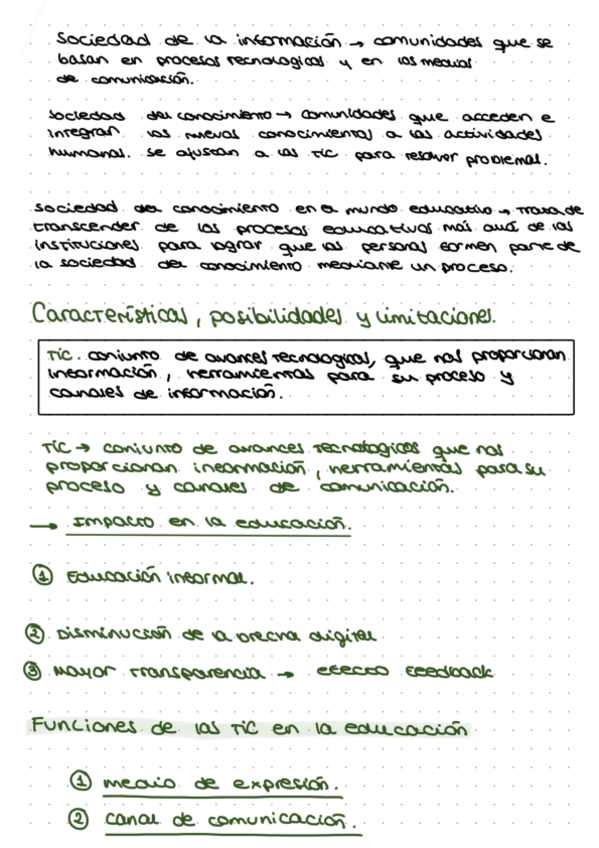 Sociedad de la información → comunidades que se
basan en procesos tecnologicos y en los medios
de comunicación.
Sociedad del conocimiento → comunidades que acceden e
integran los nuevos conocimientos a las actividades
humanas. Se ajustan a las TIC para resolver problemas.
Sociedad del conocimiento en el mundo educativo → Trata de
transcender de los procesos educativos más allá de las
instituciones para lograr que las personas formen parte de
la sociedad del conocimiento mediante un proceso.
Características, posibilidades y limitaciones.
TIC. conjunto de avances tecnologicos, que nos proporcionan
información, herramientas para su proceso y
canales de información.
TIC → conjunto de avances tecnologicos que nos
proporcionan información, herramientas para su
proceso y canales de comunicación.
→ Impacto en la educación.
① Educación informal.
② Disminución de la brecha digital
③ Mayor transparencia → efecto feedback
Funciones de las TIC en la educación
① medio de expresión.
② canal de comunicación.